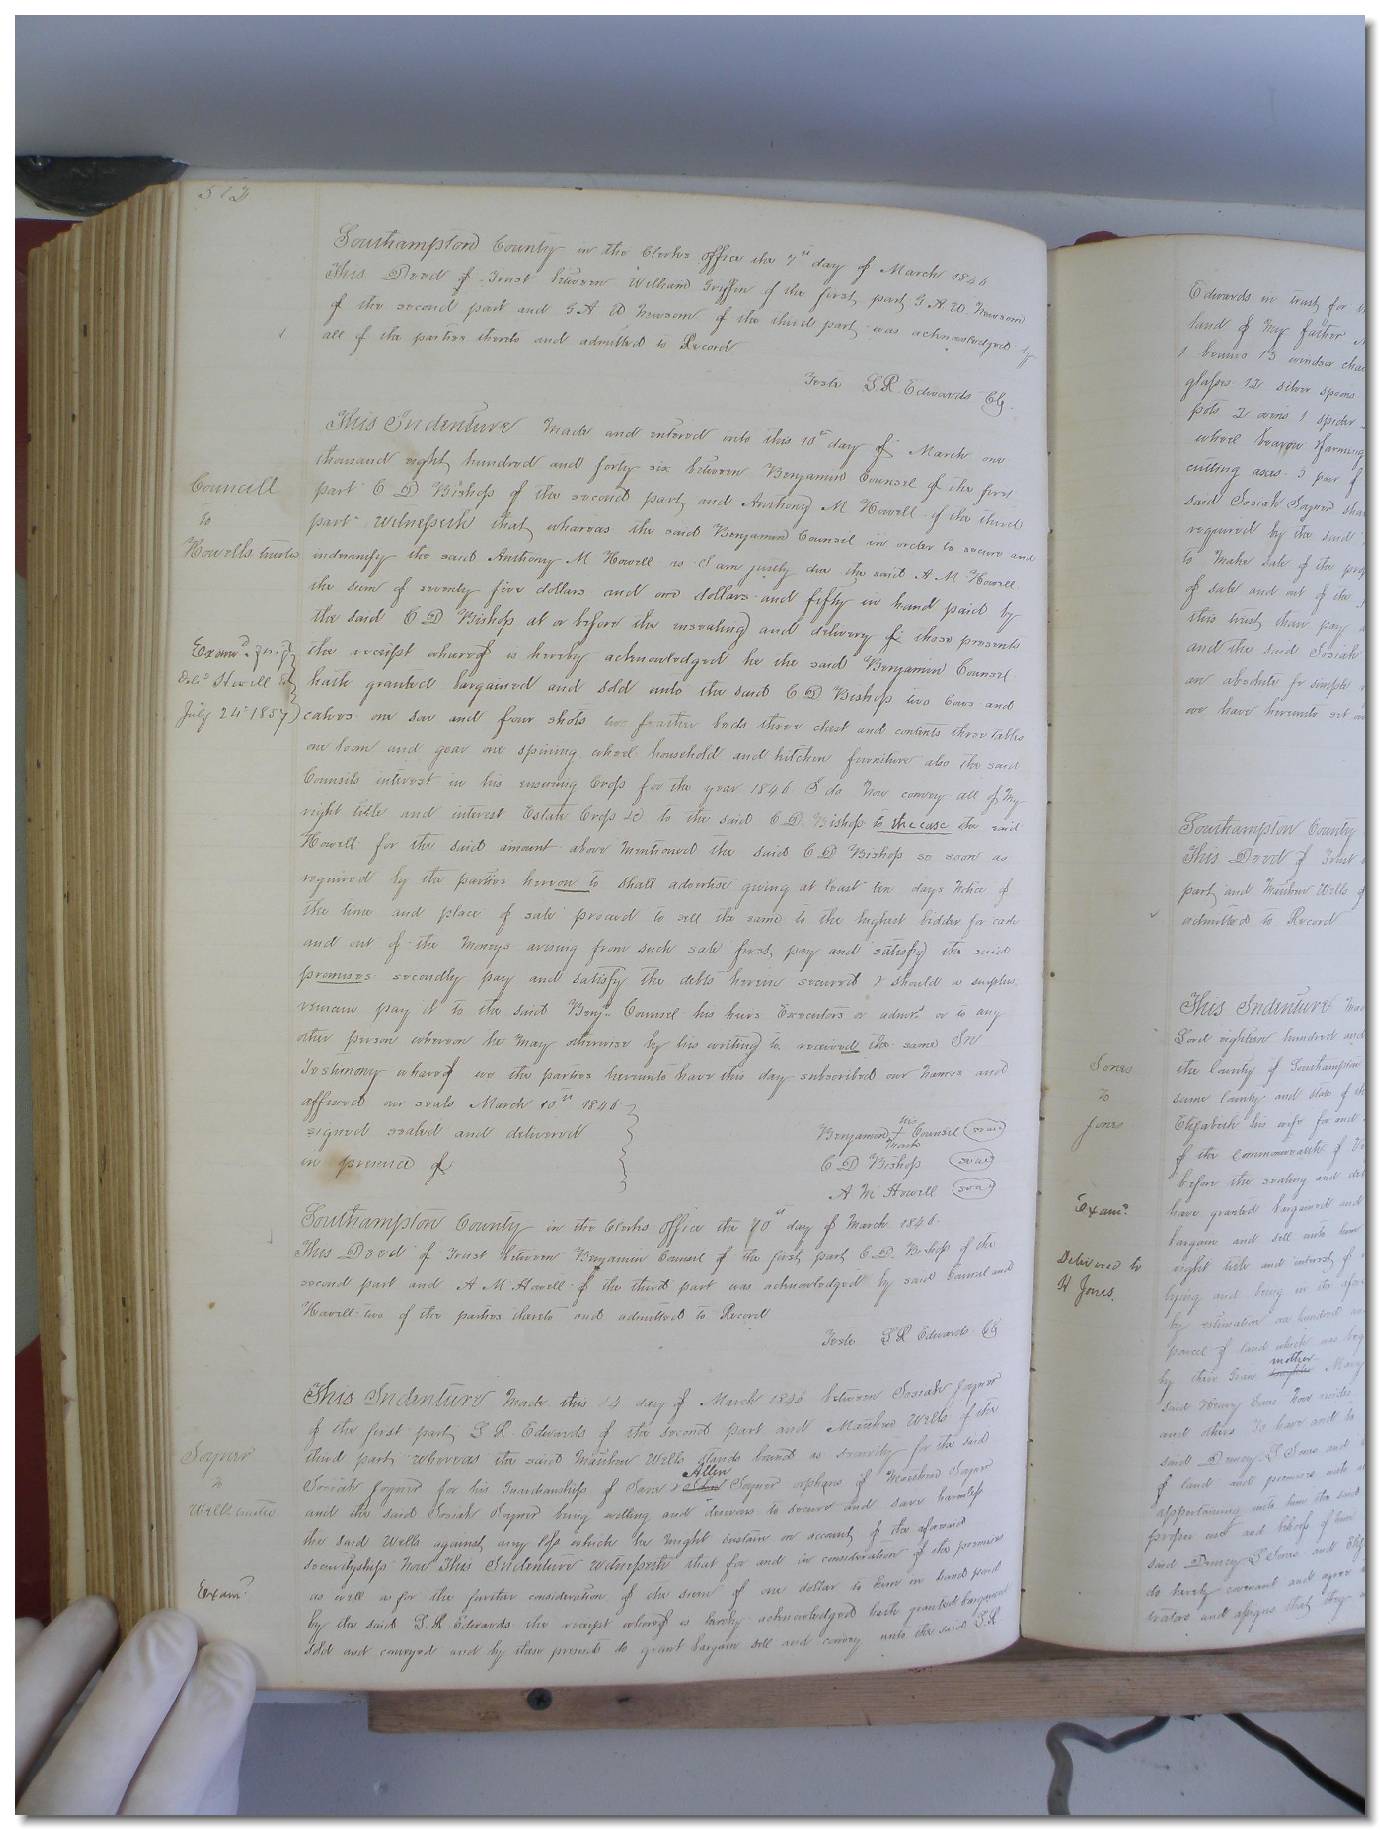 512
Southampton County in the Clerks office the 7th day of March 1846
This Deed of Trust between William Griffin of the first part G. A. W. Newsom
of the second part and G A W Newsom of the third part was acknowledged by
all of the parties thereto and admitted to Record
Teste L R Edwards Clk
Councill
to
Howells trustee
Exam'd
Del'd Howell
July 24 1857
This Indenture made and entered into this 10th day of March one
thousand eight hundred and forty six between Benjamin Counsel of the first
part C D Bishop of the second part and Anthony M Howell of the third
part Witnesseth that whereas the said Benjamin Counsel in order to secure and
indemnify the said Anthony M Howell as I am justly due the said A M Howell
the sum of seventy five dollars and one dollars and fifty in hand paid by
the said C D Bishop at or before the ensealing and delivery of these presents
the receipt whereof is hereby acknowledged he the said Benjamin Counsel
hath granted bargained and sold unto the said C D Bishop two Cows and
calves one sow and four shots two feather beds three chest and contents three tables
one loom and gear one spining wheel household and kitchen furniture also the said
Counsils interest in his ensuing Crop for the year 1846 I do now convey all of my
right title and interest Estate Crops &c to the said C. D. Bishop to the case the said
Howell for the said amount above mentioned the said C D Bishop so soon as
required by the parties hereon to shall advertise giving at least ten days notice of
the time and place of sale proceed to sell the same to the highest bidder for cash
and out of the moneys arising from such sale first pay and satisfy the said
premises secondly pay and satisfy the debts herein secured & should a surplus
remain pay it to the said Benj'n Counsel his heirs Executors or admrs or to any
other person whereon he may otherwise by his writing to received the same In
Testimony whereof we the parties hereunto have this day subscribed our names and
affixed our seals March 10th 1846
signed sealed and delivered
in presence of
Benjamin his + mark Counsel seal
C D Bishop seal
A M Howell seal
Southampton County in the Clerks office the 10th day of March 1846
This Deed of Trust between Benjamin Counsel of the first part C. D. Bishop of the
second part and A M Howell of the third part was acknowledged by said Counsel and
Howell two of the parties thereto and admitted to Record
Teste L R Edwards Clk
Joyner
to
Wells trustee
Exam'd
This Indenture made this 14 day of March 1846 between Josiah Joyner
of the first part L R Edwards of the second part and Matthew Wells of the
third part whereas the said Matthew Wells stands bound as security for the said
Josiah Joyner for his Guardianship of & Allen Joyner orphans of Matthew Joyner
and the said Josiah Joyner being willing and desirous to secure and save harmless
the said Wells against any loss which he might sustain on account of the aforesaid
securityship Now This Indenture Witnesseth that for and in consideration of the premises
as well as for the further consideration of the sum of one dollar to him in hand paid
by the said L. R Edwards the receipt whereof is hereby acknowledged hath granted bargained
sold and conveyed and by these presents do grant bargain sell and convey unto the said L R
Edwards in trust for
land of my father
13 windsor
glasses 12 silver spoons
pots 2 ovens 1 spider
wheel
cutting axes 3 pair of
said Josiah Joyner
required by the said
to make sale of the
of sale and out of the
this trust then pay
and the said Josiah
an absolute fee simple
we have hereunto set
Southampton County
This Deed of Trust
part and Matthew Wells
admitted to Record
Jones
to
Jones
Exam'd
Delivered to
H Jones.
This Indenture
Lord eighteen hundred and
the County of Southampton
same County and State of
Elizabeth his wife
of the Commonwealth of
before the sealing and
have granted bargained and
bargain and sell unto
right title and interest of
lying and being in the
by estimation one hundred
parcel of land which was
by their Gran mother Mary
said
and others To have and to
said
of land and premises
appertaining unto him the said
proper use and behoof of
said
do hereby covenant and agree
and assigns that they